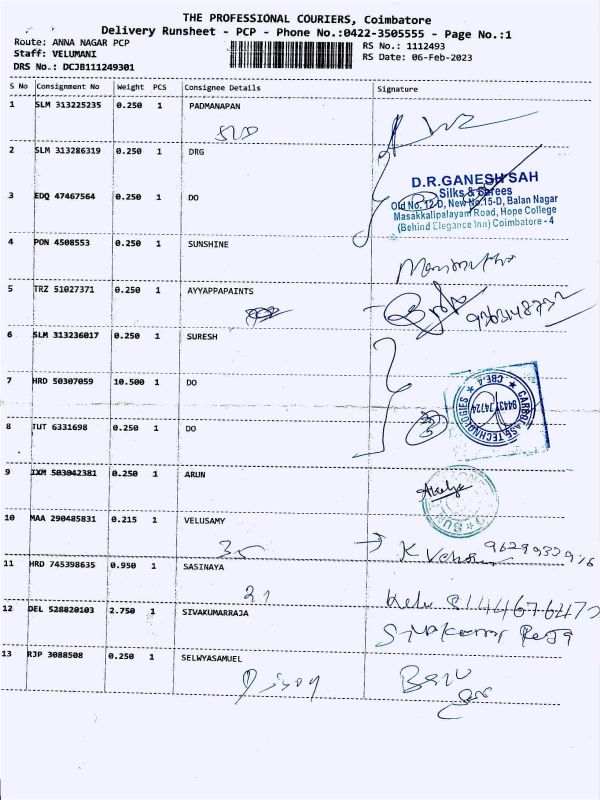 THE PROFESSIONAL COURIERS, Coimbatore
Delivery Runsheet - PCP - Phone No.:0422-3505555 - Page No.:1
Route: ANNA NAGAR PCP
Staff: VELUMANI
DRS No.: DCJB111249301
RS No.: 1112493
RS Date: 06-Feb-2023
S No Consignment No Weight PCS Consignee Details Signature
1 SLM 313225235 0.250 1 PADMANAPAN
2 SLM 313286319 0.250 1 DRG
D.R.GANESH SAH
Silks & Sarees
3 EDQ 47467564 0.250 1 DO
Old No. 12-D, New No.15-D, Balan Nagar
Masakkalipalayam Road, Hope College
(Behind Elegance Inn) Coimbatore - 4
4 PON 4508553 0.250 1 SUNSHINE
5 TRZ 51027371 0.250 1 AYYAPPAPAINTS
6 SLM 313236017 0.250 1 SURESH
7 HRD 50307059 10.500 1 DO
8 TUT 6331698 0.250 1 DO
9 IXM 503942381 0.250 1 ARUN
10 MAA 290485831 0.215 1 VELUSAMY
35
11 HRD 745398635 0.950 1 SASINAYA
21
12 DEL 528820103 2.750 1 SIVAKUMARRAJA
13 RJP 3088508 0.250 1 SELWYASAMUEL